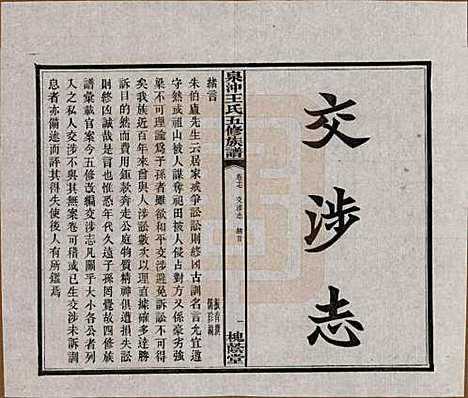 交涉志
泉沖王氏五修族譜
卷七 交涉志 緒言
槐蔭堂
緒言
朱伯廬先生云居家戒爭訟訟則終凶古訓名言允宜遵
守然或祖山被人謀奪祀田被人侵占對方又係豪劣強
梁不可理論為子孫者雖欲和平交涉避免訴訟不可得
矣我族近百年來曾與人涉訟數次以理直據確多達勝
目的然而鉅款奔走公庭物質精神俱受損失不
則終凶誠哉是言也惟恐年代久遠子孫罔覺故四修族
譜彙載官案今五修改編交涉志凡關乎大小各公者列
入之私人交涉不與其無案卷可稽或已生交涉未訴訓
息者亦備述而評其得失使後人有所鑑焉